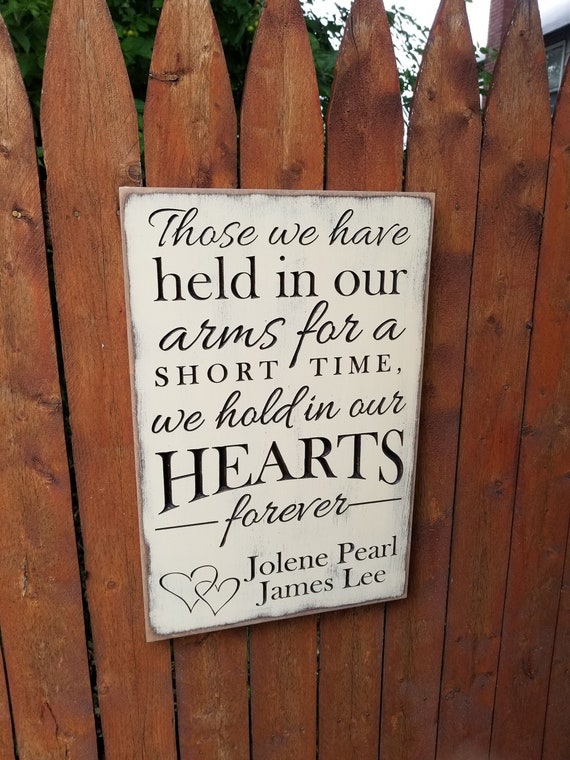 Those we have
held in our
arms for a
SHORT TIME,
we hold in our
HEARTS
forever
Jolene Pearl
James Lee